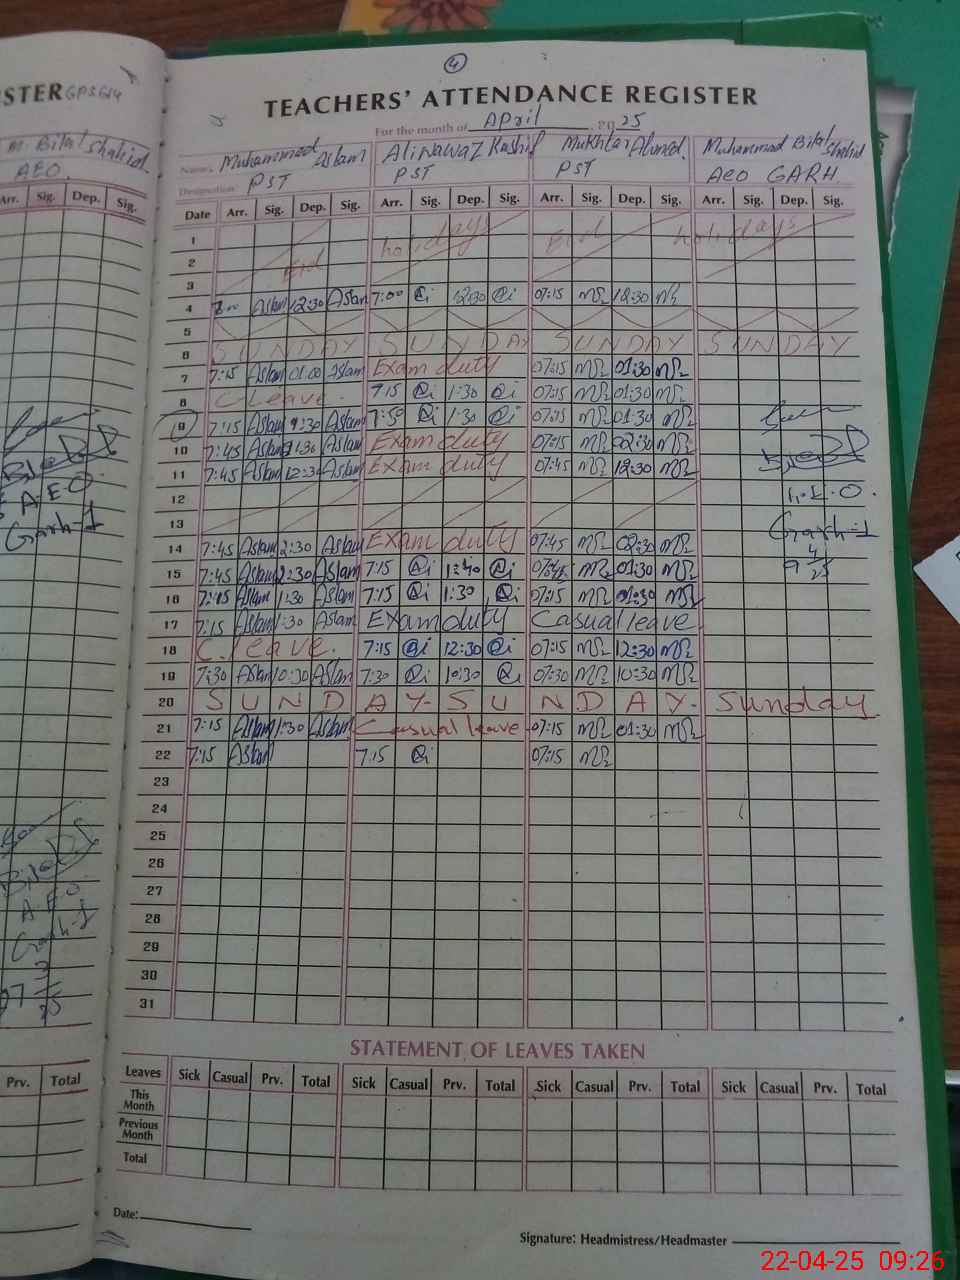 STER GPS 614
M. Bilal Shahid
AEO.
Arr. Sig. Dep. Sig.
A.E.O.
Garh-1
A.E.O
Garh-1
Prv. Total
4
TEACHERS' ATTENDANCE REGISTER
For the month of April 2025
Name: Muhammad Aslam Ali Nawaz Kashif Mukhtar Ahmed. Muhammad Bilal Shahid
Designation: PST PST PST AEO GARH
Date Arr. Sig. Dep. Sig. Arr. Sig. Dep. Sig. Arr. Sig. Dep. Sig. Arr. Sig. Dep. Sig.
1 holidays Eid holidays
2 Eid
3
4 Aslam 12:30 Aslam 7:00 12:30 07:15 12:30
5
6 SUNDAY SUNDAY SUNDAY SUNDAY
7 7:15 Aslam 01:00 Aslam Exam duty 07:15 01:30
8 C Leave. 7:15 1:30 07:15 01:30
9 7:15 Aslam Aslam 7:50 1:30 07:15 01:30
10 7:45 Aslam Aslam Exam duty 07:15 02:30
11 7:45 Aslam 12:30 Aslam Exam duty 07:45 12:30
12
13
14 7:45 Aslam 2:30 Aslam Exam duty 07:45 02:30
15 7:45 Aslam 2:30 Aslam 7:15 1:40 01:30
16 Aslam 1:30 Aslam 7:15 1:30 07:15 01:30
17 7:15 Aslam 1:30 Aslam Exam duty Casual leave
18 C. leave. 7:15 12:30 07:15 12:30
19 7:30 Aslam 10:30 Aslam 7:30 10:30 07:30 10:30
20 SUNDAY-SUNDAY. Sunday.
21 7:15 Aslam 1:30 Aslam Casual leave 07:15 01:30
22 7:15 Aslam 7:15 07:15
23
24
25
26
27
28
29
30
31
Garh-1
9 4 25
STATEMENT OF LEAVES TAKEN
Leaves Sick Casual Prv. Total Sick Casual Prv. Total Sick Casual Prv. Total Sick Casual Prv. Total
This Month
Previous Month
Total
Date:
Signature: Headmistress/Headmaster
22-04-25 09:26